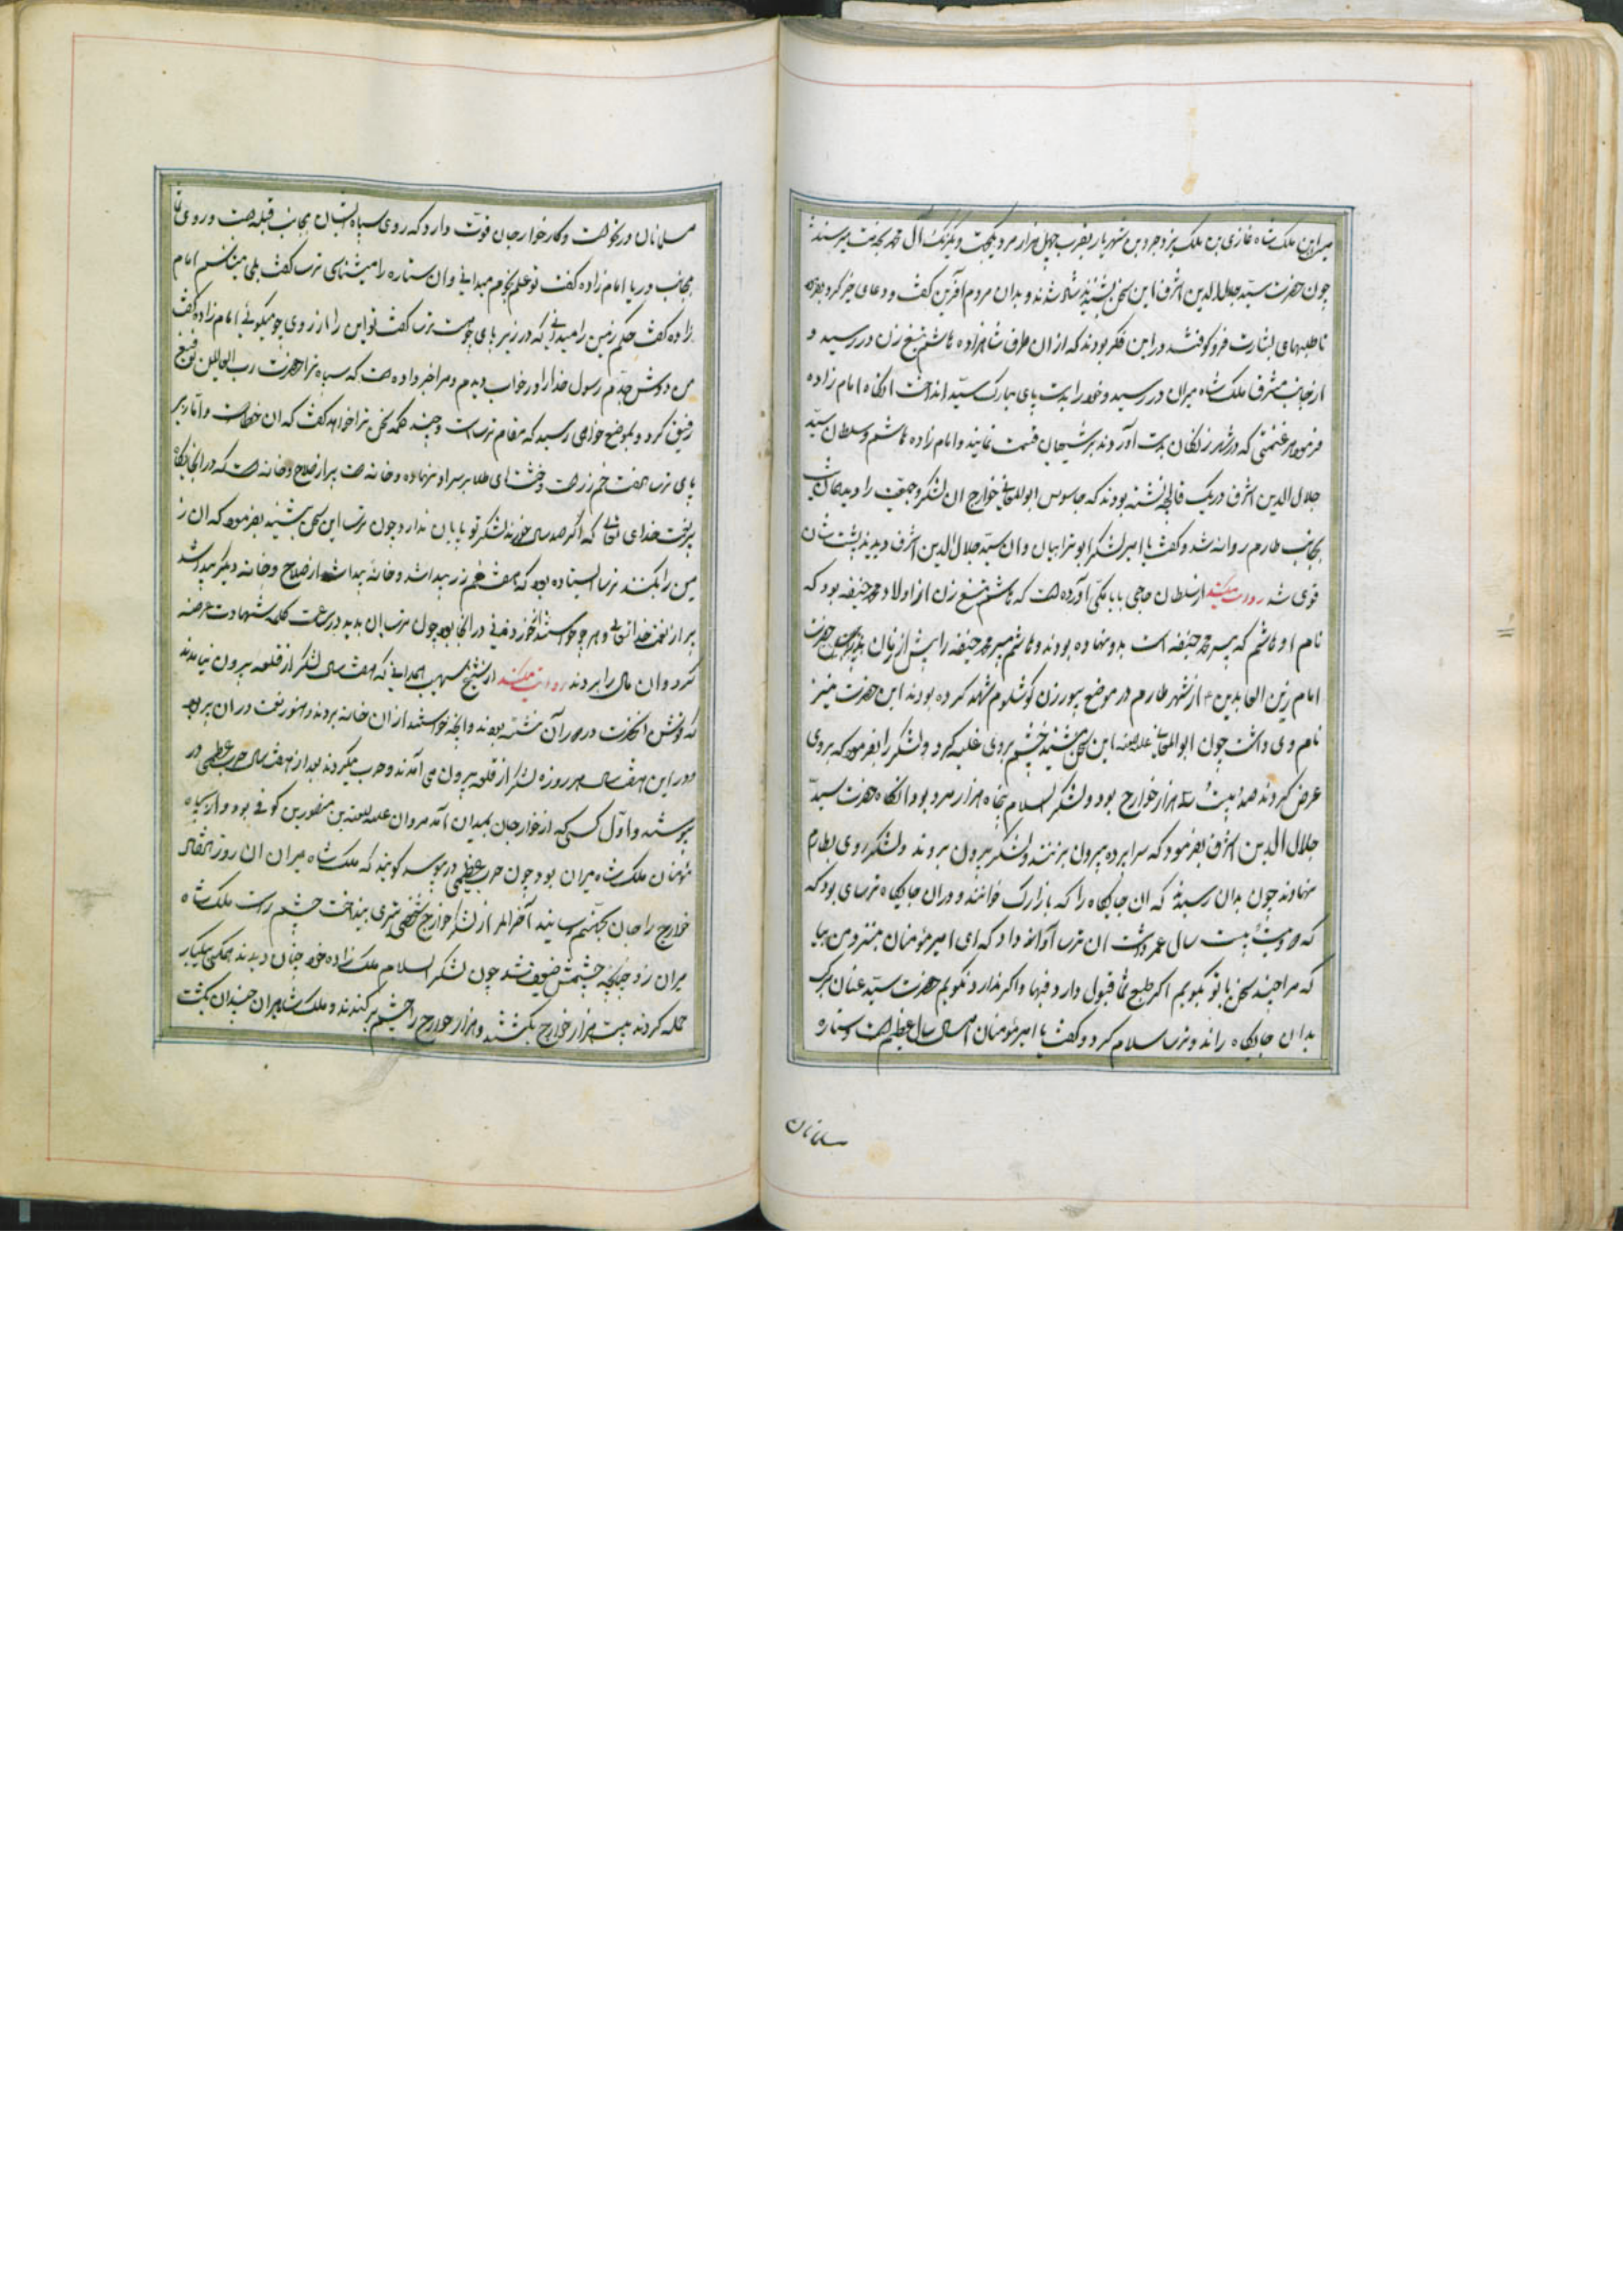 میران ملک شاه غازی بن ملک یزدجرد بن شهریار بقرب چهل هزار مرد یکجهت و یکرنگ آل محمد بخدمت میرسند
چون حضرت سید جلال الدین اشرف این سخن بشنید شاد شدند و بدان مردم آفرین گفت و دعای خیر کرد بفرمود
تا طبلهای بشارت فرو کوفتند در این فکر بودند که از ان طرف شاهزاده هاشم تیغ زن در رسید و
از جانب مشرق ملک شاه میران در رسید و خود را بدست پای مبارک سید انداخت آنکاه امام زاده
فرمود هر غنیمتی که در شهر زنگان بدست آوردند بر شیعیان قسمت نمایند و امام زاده هاشم و سلطان سید
جلال الدین اشرف در یک قالیچه نشسته بودند که جاسوس ابو المعالی خوارج ان لشکر و جمعیت را دید
بجانب طارم روانه شد و گفت یا امیر لشکر ابو ترابیان و ان سید جلال الدین اشرف دیدند پشت شان
قوی شد روایت میکند از سلطان حاجی بابا مکی آورده است که هاشم تیغ زن از اولاد محمد حنیفه بود که
نام او هاشم که پسر محمد حنیفه است بدو نهاده بودند و هاشم پسر محمد حنیفه را پیش از زمان حضرت
امام زین العابدین ع از شهر طارم در موضع پیورزن کوشلوم شهید کرده بودند این حضرت نیز
نام وی داشت چون ابوالمعالی علیه اللعنه این سخن بشنید خشم بروی غلبه کرد و لشکر را بفرمود که بروی
عرض کردند صد و بیست هزار خوارج بود و لشکر اسلام پنجاه هزار مرد بود انکاه حضرت سید
جلال الدین اشرف بفرمود که سراپرده بیرون بزنند و لشکر بیرون بروند و لشکر روی بطارم
نهادند چون بدان رسید که ان جایکاه را که بازارک خوانند و در ان جایکاه ترسای بود که
که صد و بیست سال عمر داشت ان ترسا آواز داد که ای امیر مؤمنان پیشتر و من بیا
که مرا چند سخن با تو بگویم اکر طبع شما قبول دارد فبها و اکر ندارد نگویم حضرت سید عنان مرکب
بدان جایکاه راند و ترسا سلام کرد و گفت یا امیر مؤمنان امسال سال عظیم است و ستاره
مسلمانان
مسلمانان در نحو است و کار خوارجان قوت دارد که روی سپاه ایشان بجانب قبله است و روی شما
بجانب دریا امام زاده گفت تو علم نجوم میدانی و ان ستاره را میشناسی ترسا گفت بلی میشناسم امام
زاده گفت حکم زمین را میدانی که در زیر پای تو چیست ترسا گفت تو این را از روی چه میگوئی امام زاده گفت
من دوش جدم رسول خدا را در خواب دیدم و مرا خبر داده است که سپاه ترا حضرت رب العالمین توفیق
رفیق کرد و بموضع خواهی رسید که مقام ترسا است و چند کلمه سخن ترا خواهد گفت که ان خطا است و اما زیر
پای ترسا هفت خم زر است و خشت های طلا بر سر او نهاده و خانه ست پر از سلاح و خانه ست که در آن جایگاه
پر نعمت خدای تعالی که اگر صد سال خورند لشکر تو پایان ندارد چون ترسا این سخن بشنید بفرمود که ان ز
مین را بکنند ترسا ایستاده بود که هفت خم زر پیدا شد و خانه پیدا شد از سلاح و خانه دیگر پیدا شد
پر از نعمت خدا تعالی و هر چه خواستند از خوردنی در انجا بود چون ترسا ان بدید در ساعت کلمه شهادت عرضه
کرد و ان مال را بردند روایت میکند از شیخ سهیب همدانی که هفت سال لشکر از قلعه بیرون نیامدند
که نوش انحضرت در ان نشسته بودند و انچه خواستند از ان خانه بردند و هنوز نعمت در ان پر بود
و در این هفت سال هر روزه لشکر از قلعه بیرون می آمدند و حرب میکردند بعد از هفت سال حرب عظیمی در
پیوست و اول کسی که از خوارجان بمیدان آمد مروان علیه اللعنه بن منصور بن کوفی بود و از سپاه
مؤمنان ملک شاه میران بود چون حرب عظیمی در پیوست گویند که ملک شاه میران ان روز
خوارج را جان بجهنم رسانید آخر الامر از لشکر خوارج شخصی تیری بینداخت چشم راست ملک شاه
میران زد چنانچه چشمش ضعیف شد چون لشکر اسلام ملک زاده خود چنان دیدند همگی بیکبار
حمله کردند بیست هزار خوارج بکشتند و هزار خوارج را چشم برکندند و ملک شاه میران چندان بکشت